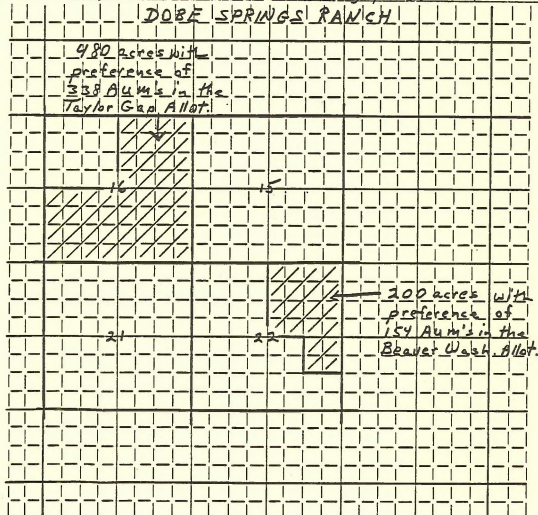 DOBE SPRINGS RANCH
480 acres with
preference of
338 Aum's in the
Taylor Gap Allot.
16
15
200 acres with
preference of
154 Aum's in the
Beaver Wash. Allot.
21
22